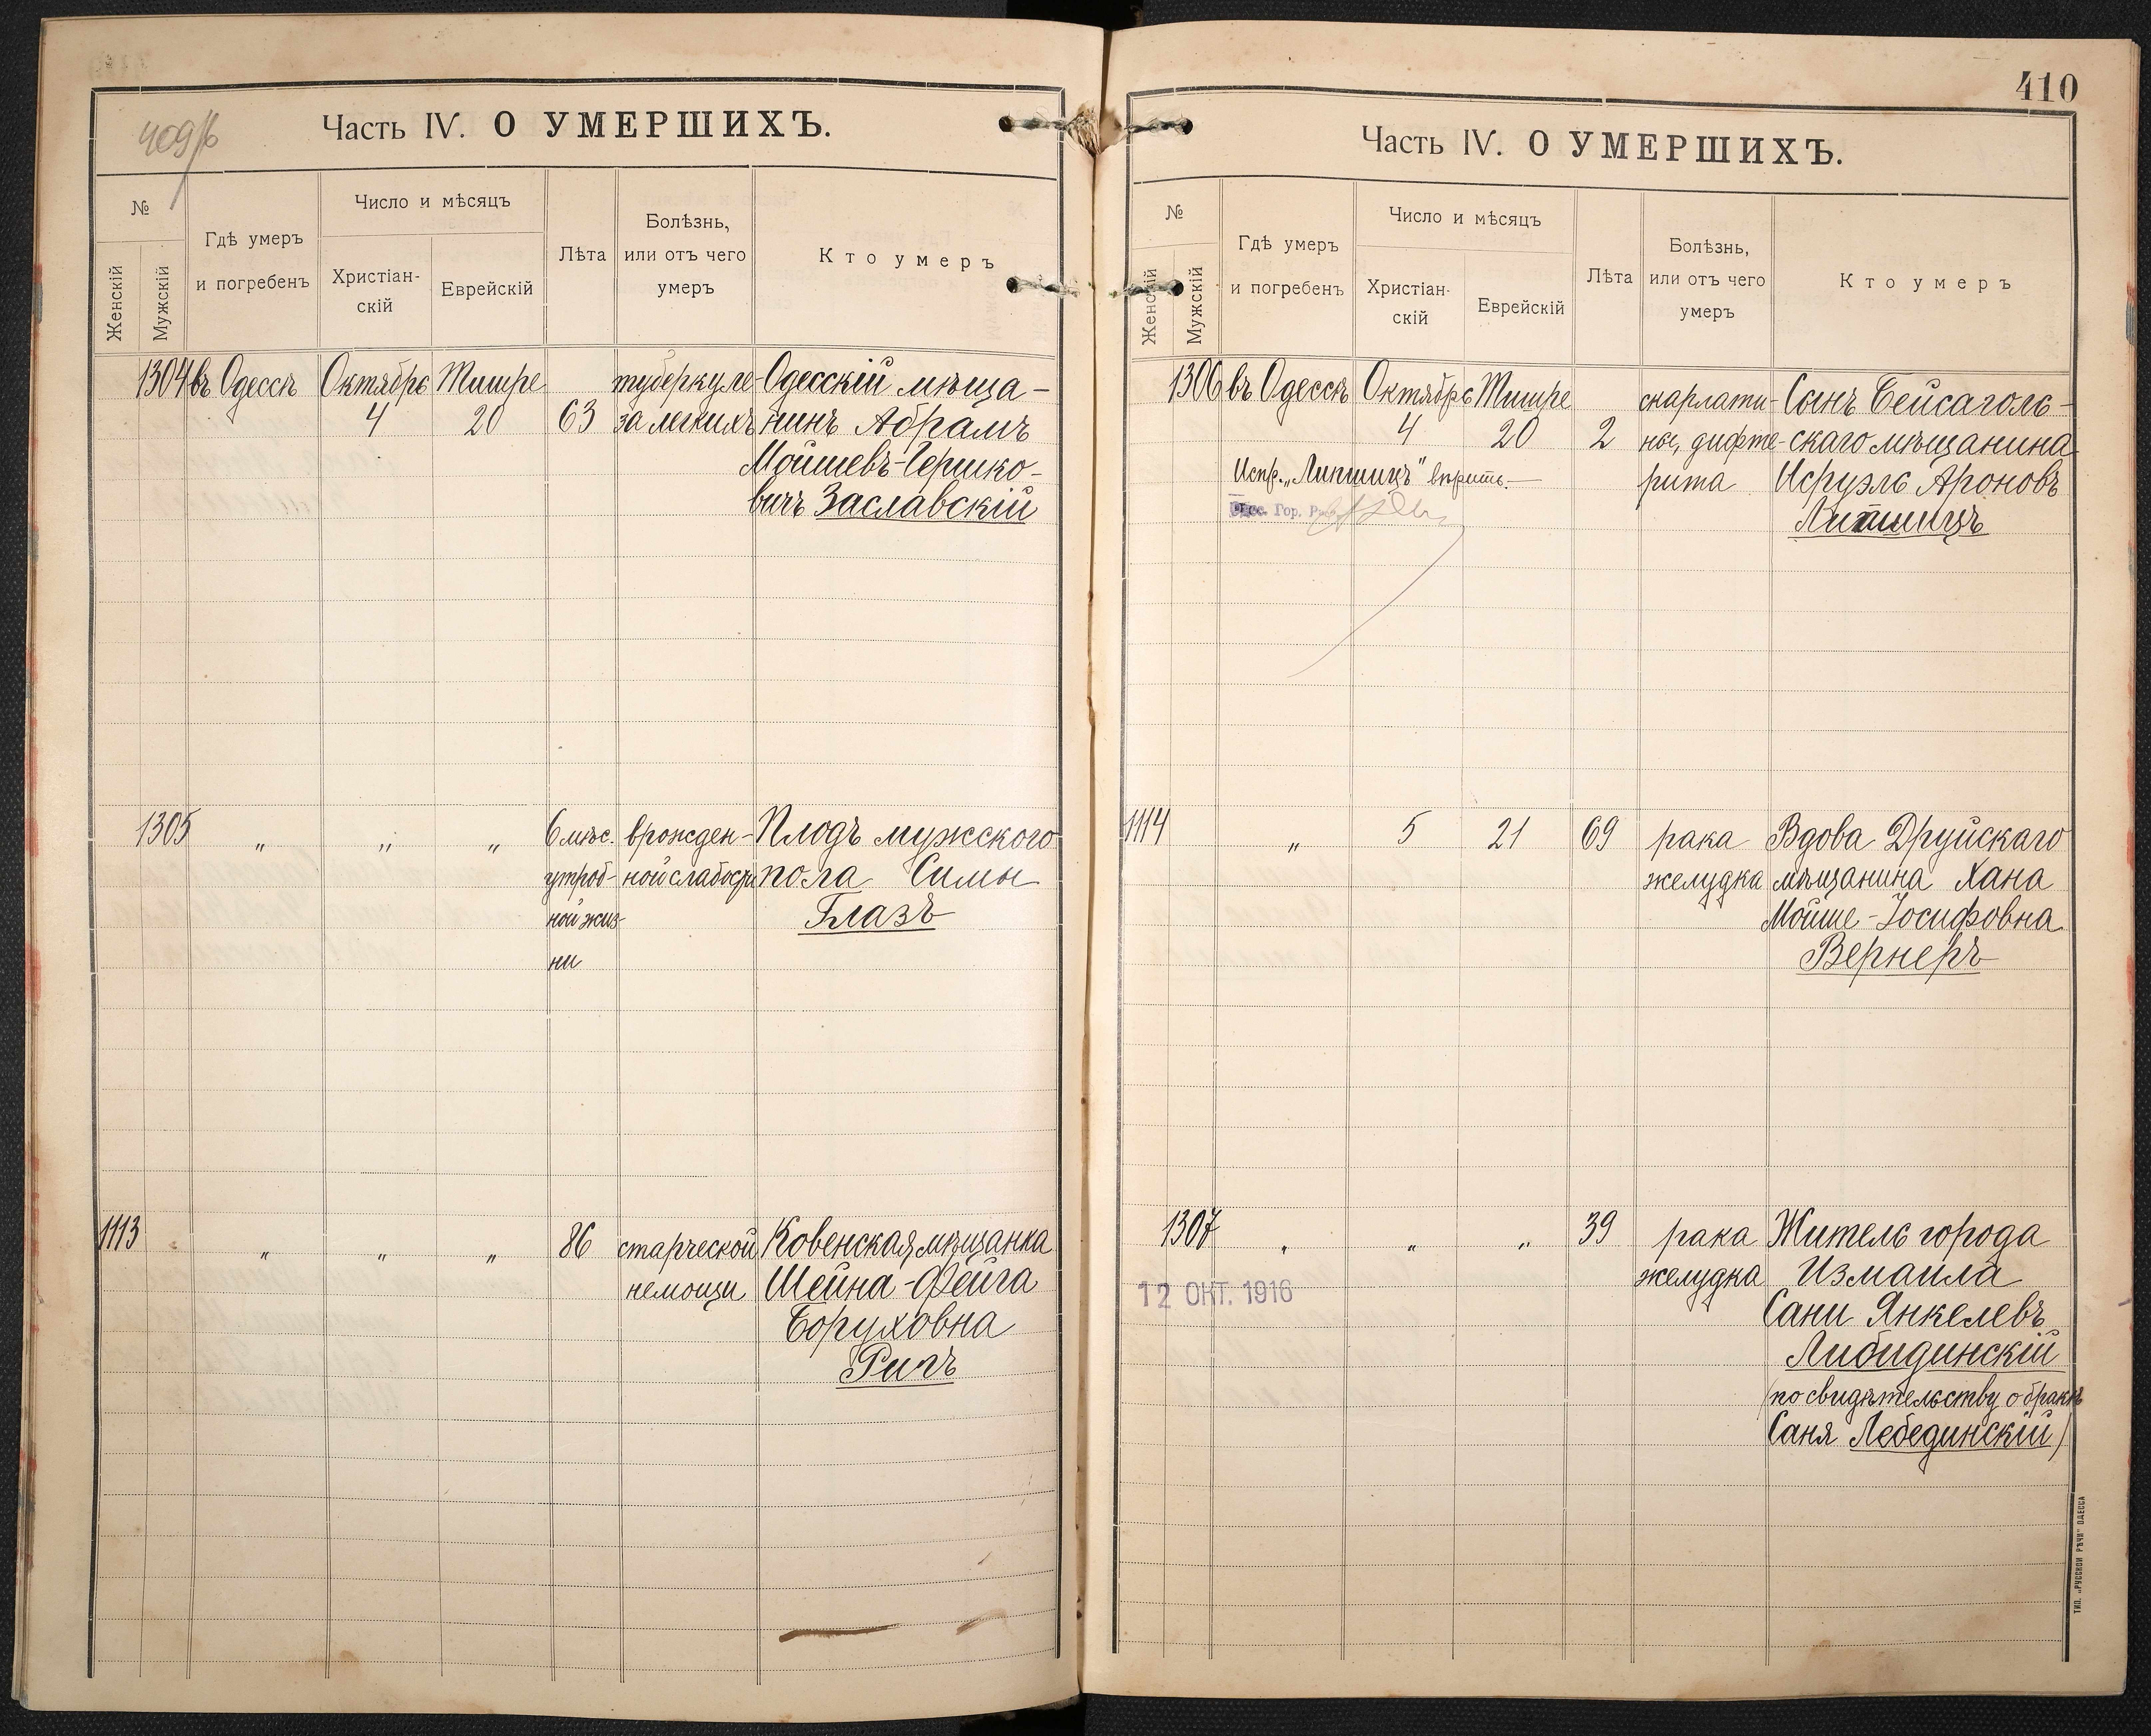 409/б
Часть IV. О УМЕРШИХЪ.
№
Женскій
Мужскій
Гдѣ умеръ
и погребенъ
Число и мѣсяцъ
Христіан-
скій
Еврейскій
Лѣта
Болѣзнь,
или отъ чего
умеръ
Кто умеръ
1304 въ Одессѣ Октябрь Тишре туберкуле- Одесскій мѣща-
4 20 63 за легкихъ нинъ Абрамъ
Мойшевъ-Гершко-
вичъ Заславскій
1305 „ „ „ 6 мѣс. врожден- Плодъ мужского
утроб- ной слабости пола Симы
ной жиз- Глазъ
ни
1113 „ „ „ 86 старческой Ковенская мѣщанка
немощи Шейна-Фейга
Боруховна
Ригъ
410
Часть IV. О УМЕРШИХЪ.
№
Женскій
Мужскій
Гдѣ умеръ
и погребенъ
Число и мѣсяцъ
Христіан-
скій
Еврейскій
Лѣта
Болѣзнь,
или отъ чего
умеръ
Кто умеръ
1306 въ Одессѣ Октябрь Тишре скарлати- Сынъ Бейсаголь-
4 20 2 ны, дифте- скаго мѣщанина
Испр. „Липшицъ" вѣрить. рита Исруэль Ароновъ
Гор. Липшицъ
1114 „ 5 21 69 рака Вдова Друйскаго
желудка мѣщанина Хана
Мойше-Іосифовна
Вернеръ
1307 „ „ „ 39 рака Житель города
12 ОКТ. 1916 желудка Измаила
Сани Янкелевъ
Либидинскій
(по свидѣтельству о бракѣ
Саня Лебединскій)
ТИП. „РУССКОЙ РѢЧИ" ОДЕССА